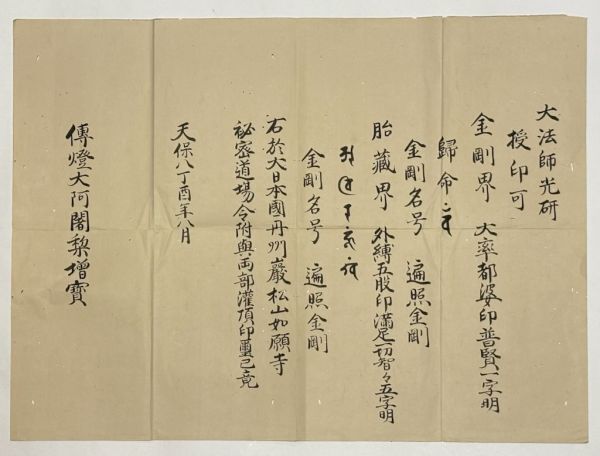 大法師光研
授印可
金剛界　大率都婆印普賢一字明
歸命
金剛名号　遍照金剛
胎藏界　外縛五股印滿足一切智々五字明
金剛名号　遍照金剛
右於大日本國丹州巖松山如願寺
秘密道場令附與両部灌頂印璽已竟
天保八丁酉年八月
傳燈大阿闍梨増寶